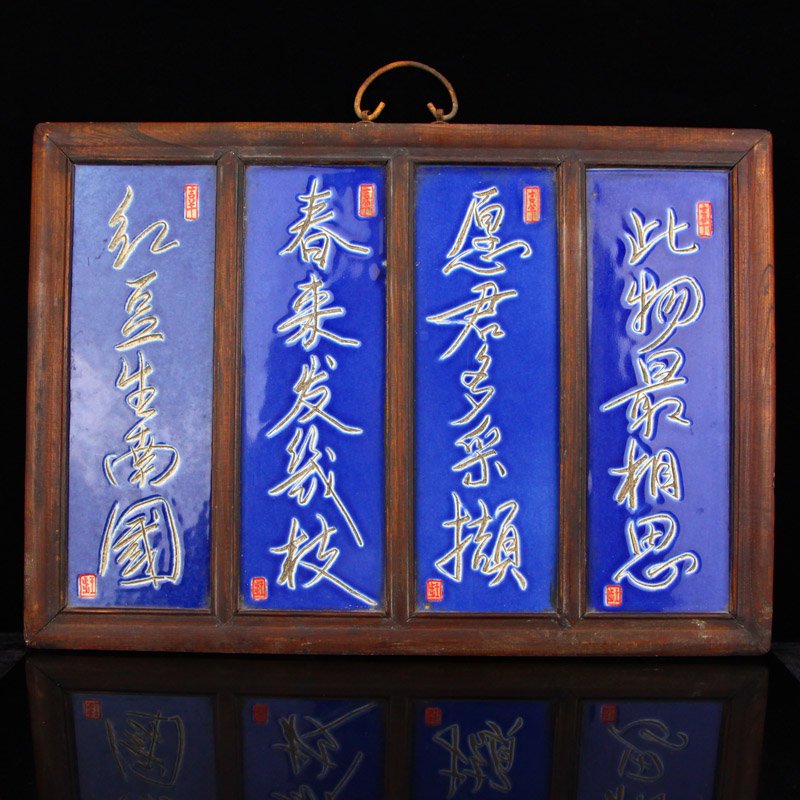 红豆生南國
春来发幾枝
愿君多采撷
此物最相思